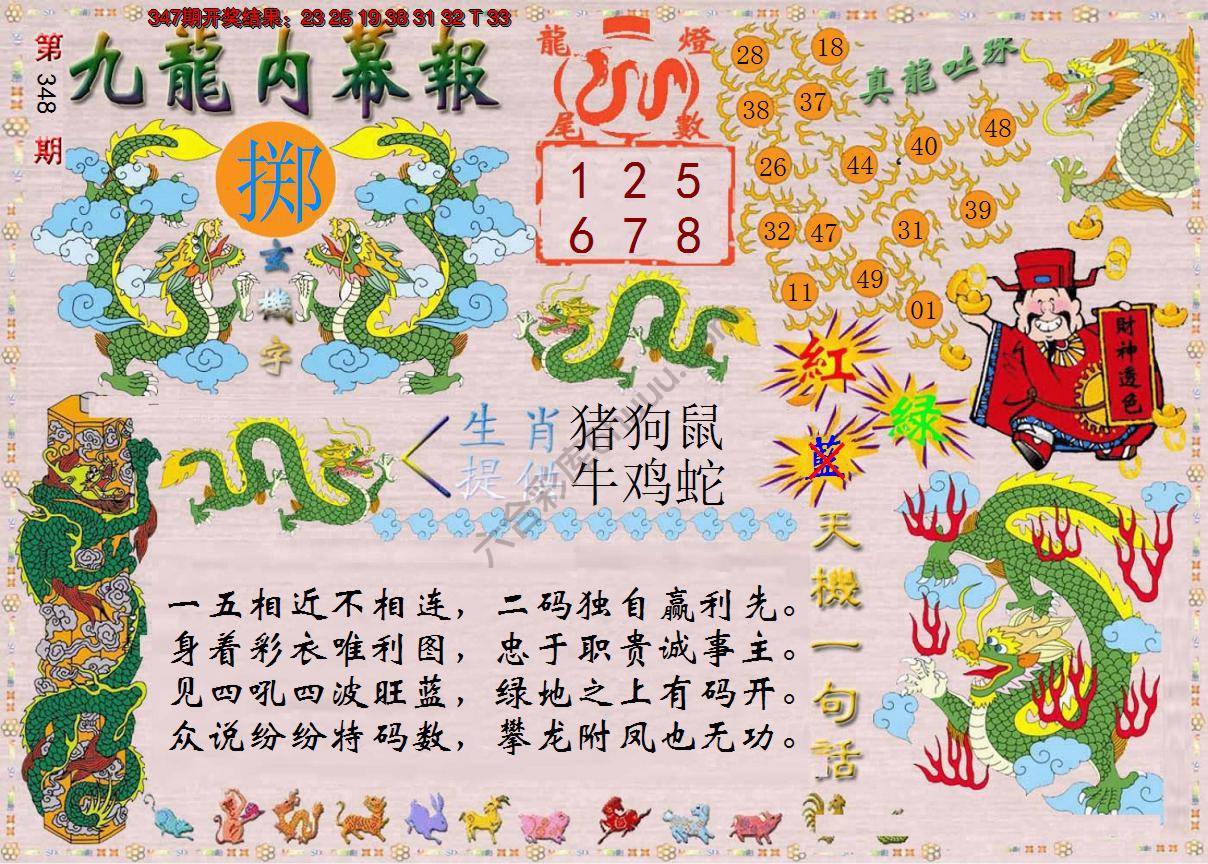 347期开奖结果：23 25 19 38 31 32 T 33
第348期
九龍内幕報
掷
玄機字
龍燈
尾數
1 2 5
6 7 8
真龍吐珠
28 18
38 37
26 44 40 48
32 47 31 39
11 49 01
財神透色
紅
綠
藍
生肖
提供
猪狗鼠
牛鸡蛇
天機一句話
一五相近不相连，二码独自赢利先。
身着彩衣唯利图，忠于职贵诚事主。
见四吼四波旺蓝，绿地之上有码开。
众说纷纷特码数，攀龙附凤也无功。